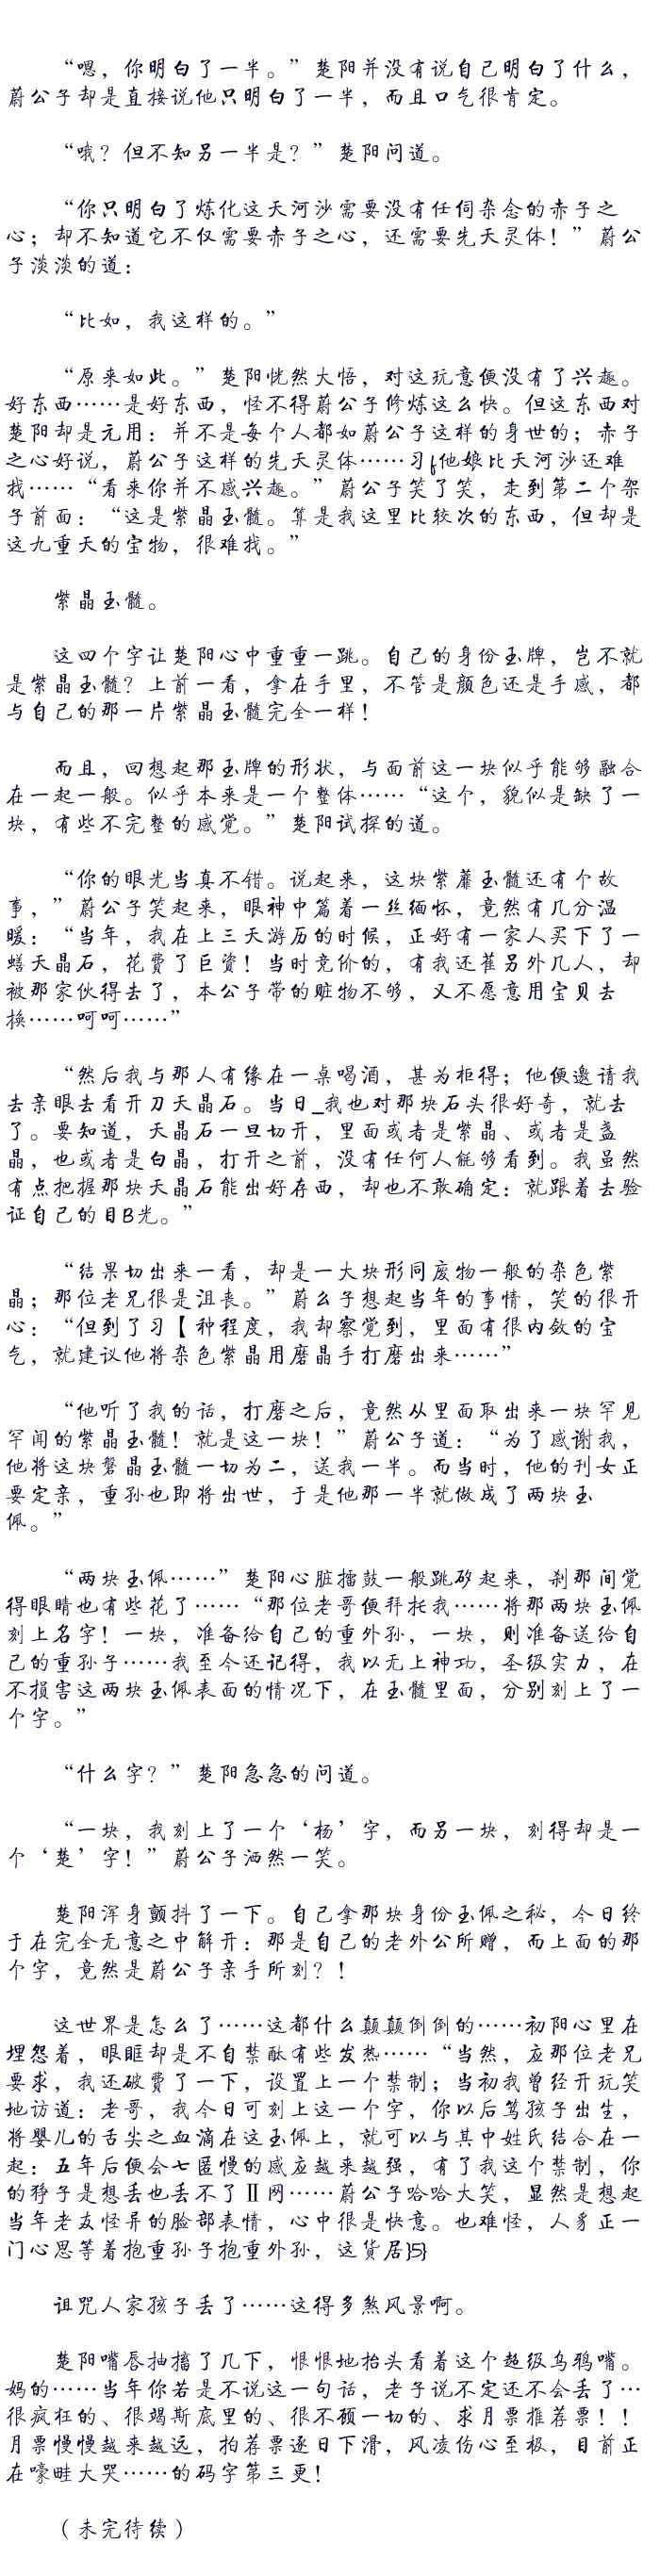 “嗯，你明白了一半。”楚阳并没有说自己明白了什么，
蔚公子却是直接说他只明白了一半，而且口气很肯定。
“哦？但不知另一半是？”楚阳问道。
“你只明白了炼化这天河沙需要没有任何杂念的赤子之
心；却不知道它不仅需要赤子之心，还需要先天灵体！”蔚公
子淡淡的道：
“比如，我这样的。”
“原来如此。”楚阳恍然大悟，对这玩意便没有了兴趣。
好东西……是好东西，怪不得蔚公子修炼这么快。但这东西对
楚阳却是元用：并不是每个人都如蔚公子这样的身世的；赤子
之心好说，蔚公子这样的先天灵体……习f他娘比天河沙还难
找……“看来你并不感兴趣。”蔚公子笑了笑，走到第二个架
子前面：“这是紫晶玉髓。算是我这里比较次的东西，但却是
这九重天的宝物，很难找。”
紫晶玉髓。
这四个字让楚阳心中重重一跳。自己的身份玉牌，岂不就
是紫晶玉髓？上前一看，拿在手里，不管是颜色还是手感，都
与自己的那一片紫晶玉髓完全一样！
而且，回想起那玉牌的形状，与面前这一块似乎能够融合
在一起一般。似乎本来是一个整体……“这个，貌似是缺了一
块，有些不完整的感觉。”楚阳试探的道。
“你的眼光当真不错。说起来，这块紫蘼玉髓还有个故
事，”蔚公子笑起来，眼神中篇着一丝缅怀，竟然有几分温
暖：“当年，我在上三天游历的时候，正好有一家人买下了一
蟮天晶石，花费了巨资！当时竞价的，有我还雈另外几人，却
被那家伙得去了，本公子带的赃物不够，又不愿意用宝贝去
换……呵呵……”
“然后我与那人有缘在一桌喝酒，甚为柜得；他便邀请我
去亲眼去看开刀天晶石。当日_我也对那块石头很好奇，就去
了。要知道，天晶石一旦切开，里面或者是紫晶、或者是盏
晶，也或者是白晶，打开之前，没有任何人能够看到。我虽然
有点把握那块天晶石能出好存西，却也不敢确定：就跟着去验
证自己的目B光。”
“结果切出来一看，却是一大块形同废物一般的杂色紫
晶；那位老兄很是沮丧。”蔚么子想起当年的事情，笑的很开
心：“但到了习【种程度，我却察觉到，里面有很内敛的宝
气，就建议他将杂色紫晶用磨晶手打磨出来……”
“他听了我的话，打磨之后，竟然从里面取出来一块罕见
罕闻的紫晶玉髓！就是这一块！”蔚公子道：“为了感谢我，
他将这块磐晶玉髓一切为二，送我一半。而当时，他的刊女正
要定亲，重孙也即将出世，于是他那一半就做成了两块玉
佩。”
“两块玉佩……”楚阳心脏擂鼓一般跳矽起来，刹那间觉
得眼睛也有些花了……“那位老哥便拜托我……将那两块玉佩
刻上名字！一块，准备给自己的重外孙，一块，则准备送给自
己的重孙子……我至今还记得，我以无上神功，圣级实力，在
不损害这两块玉佩表面的情况下，在玉髓里面，分别刻上了一
个字。”
“什么字？”楚阳急急的问道。
“一块，我刻上了一个‘杨’字，而另一块，刻得却是一
个‘楚’字！”蔚公子洒然一笑。
楚阳浑身颤抖了一下。自己拿那块身份玉佩之秘，今日终
于在完全无意之中解开：那是自己的老外公所赠，而上面的那
个字，竟然是蔚公子亲手所刻？！
这世界是怎么了……这都什么颠颠倒倒的……初阳心里在
埋怨着，眼眶却是不自禁酞有些发热……“当然，应那位老兄
要求，我还破费了一下，设置上一个禁制；当初我曾经开玩笑
地访道：老哥，我今日可刻上这一个字，你以后笃孩子出生，
将婴儿的舌尖之血滴在这玉佩上，就可以与其中姓氏结合在一
起：五年后便会七匿慢的感应越来越强，有了我这个禁制，你
的狰子是想丢也丢不了Ⅱ网……蔚公子哈哈大笑，显然是想起
当年老友怪异的脸部表情，心中很是快意。也难怪，人豸正一
门心思等着抱重孙子抱重外孙，这货居}5}
诅咒人家孩子丢了……这得多煞风景啊。
楚阳嘴唇抽搐了几下，恨恨地抬头看着这个超级乌鸦嘴。
妈的……当年你若是不说这一句话，老子说不定还不会丢了…
很疯枉的、很竭斯底里的、很不硕一切的、求月票推荐票！！
月票慢慢越来越远，拍荐票逐日下滑，风凌伤心至极，目前正
在嚎畦大哭……的码字第三更！
（未完待续）